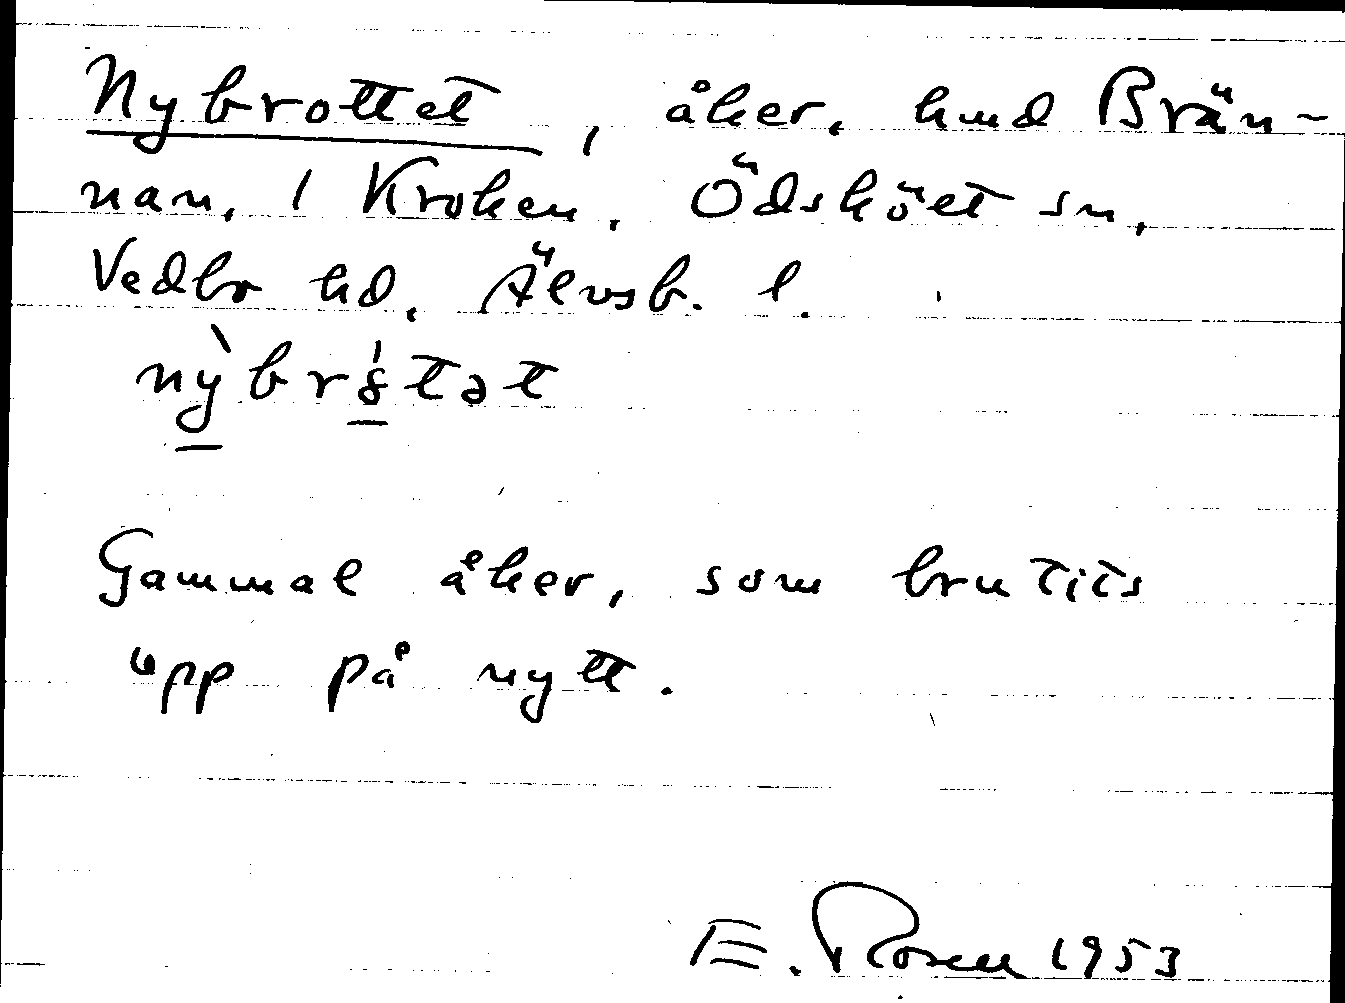 Nybrottet, åker, hmd Brän-
nan, 1 Kroken, Ödsköet sn,
Vedbo hd, Älvsb. l.
Gammal åker, som brutits
upp på nytt.
E. Rosen 1953